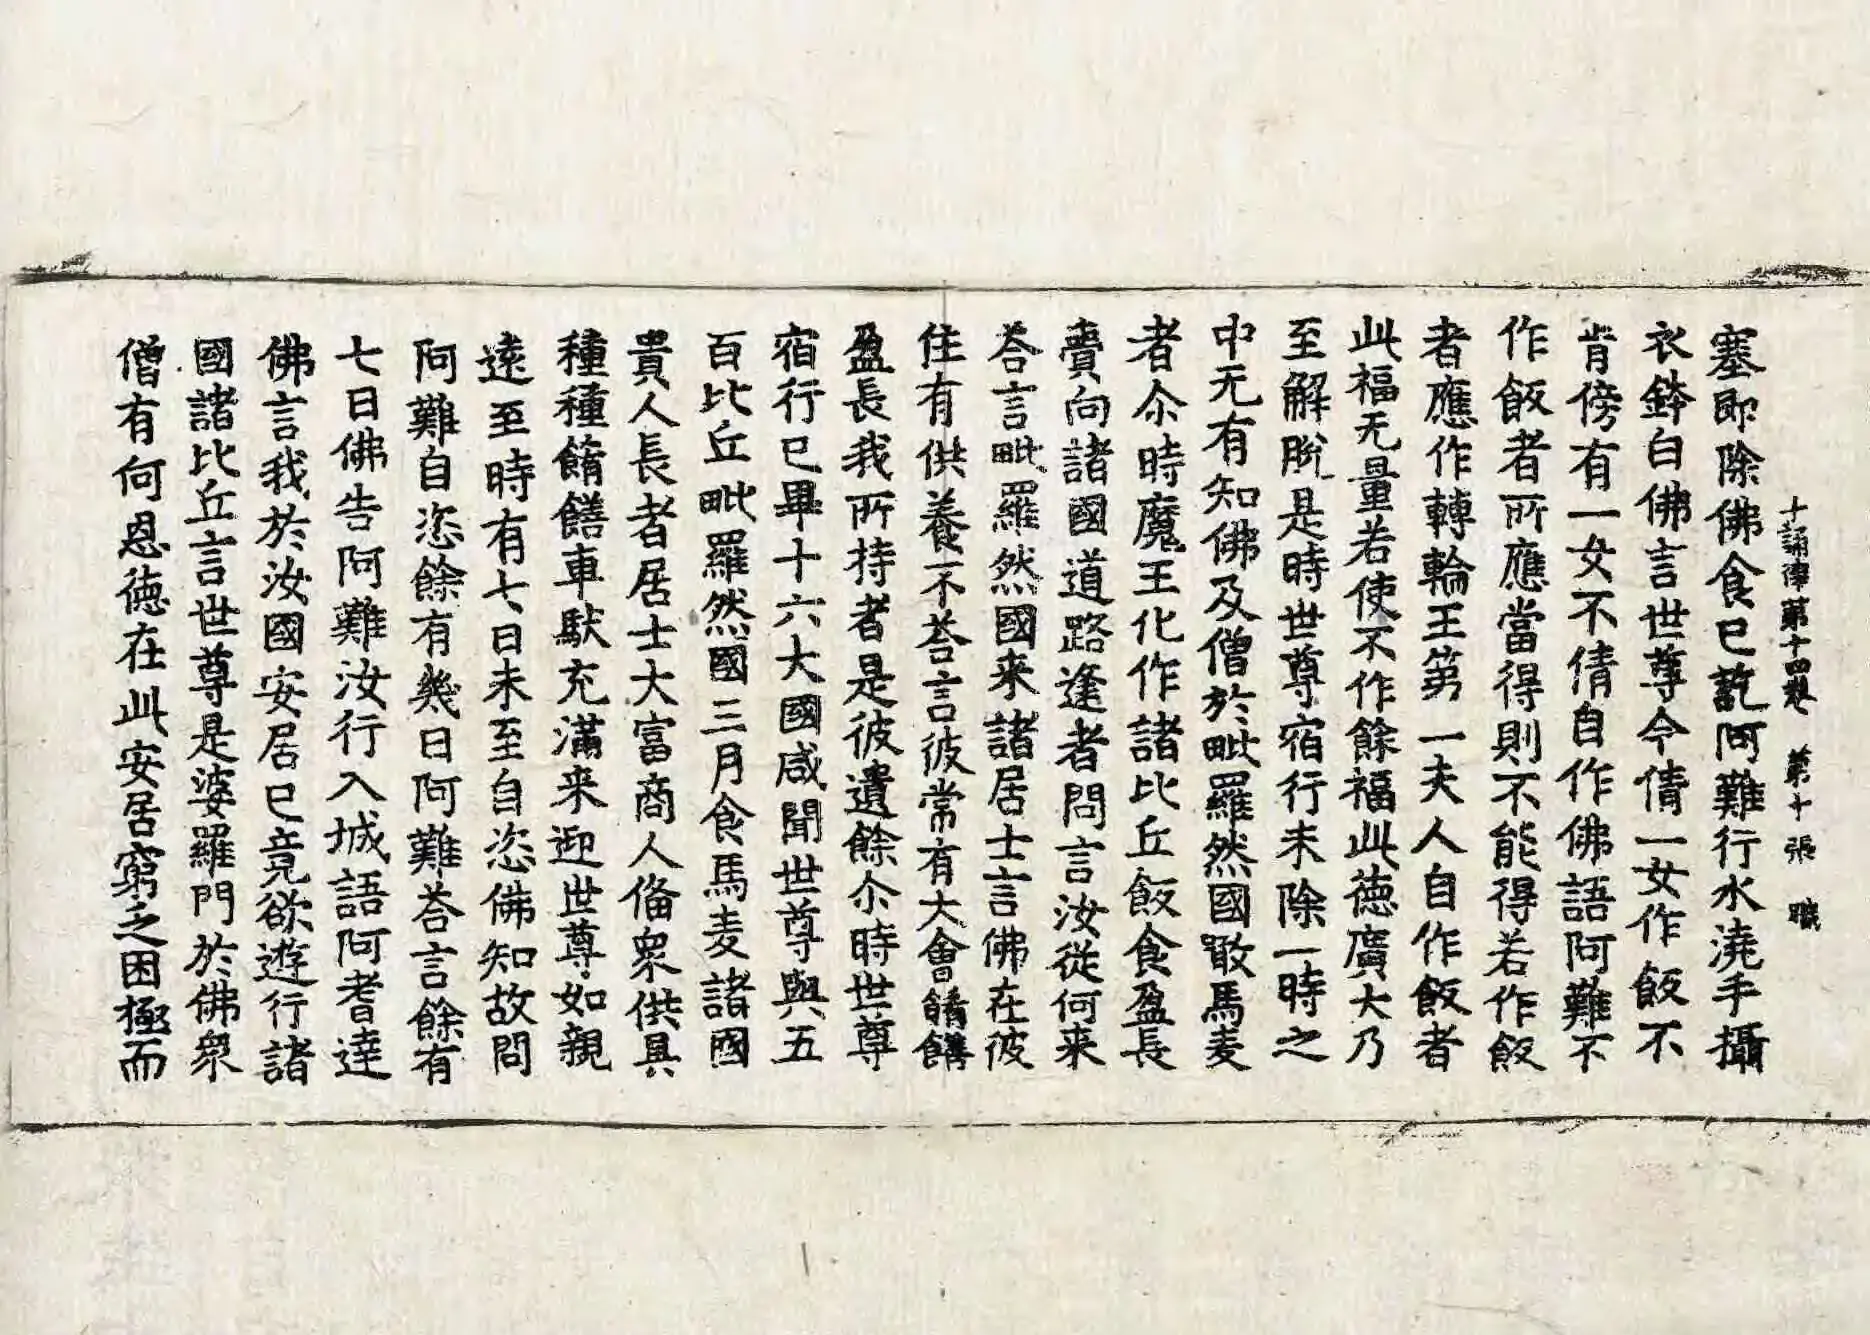 十誦律第十四卷 第十張 職
塞即除佛食已訖阿難行水澆手攝
衣鉢白佛言世尊今倩一女作飯不
肯傍有一女不倩自作佛語阿難不
作飯者所應當得則不能得若作飯
者應作轉輪王第一夫人自作飯者
此福无量若使不作餘福此德廣大乃
至解脫是時世尊宿行未除一時之
中无有知佛及僧於毗羅然國噉馬麦
者尒時魔王化作諸比丘飯食盈長
賣向諸國道路逢者問言汝從何来
荅言毗羅然國来諸居士言佛在彼
住有供養不荅言彼常有大會餚饍
盈長我所持者是彼遺餘尒時世尊
宿行已畢十六大國咸聞世尊與五
百比丘毗羅然國三月食馬麦諸國
貴人長者居士大富商人俻衆供具
種種餚饍車馱充滿来迎世尊如親
遠至時有七日未至自恣佛知故問
阿難自恣餘有幾日阿難荅言餘有
七日佛告阿難汝行入城語阿耆達
佛言我於汝國安居已竟欲遊行諸
國諸比丘言世尊是婆羅門於佛衆
僧有何恩德在此安居窮之困極而